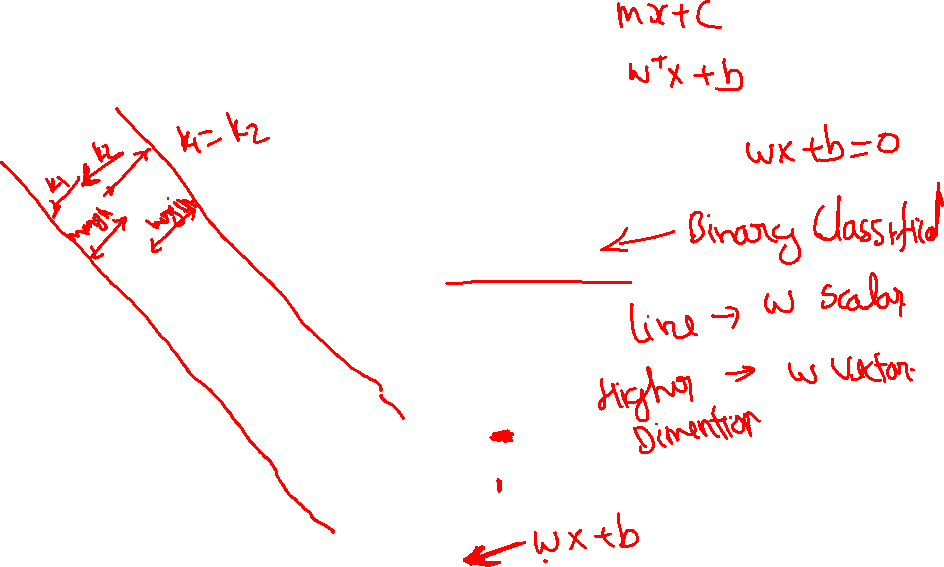 mx+c
wᵀx+b
k1=k2
k2
k1
wx+b=0
Binary Classified
Line → w scalar
Higher → w vector
Dimention
wx+b